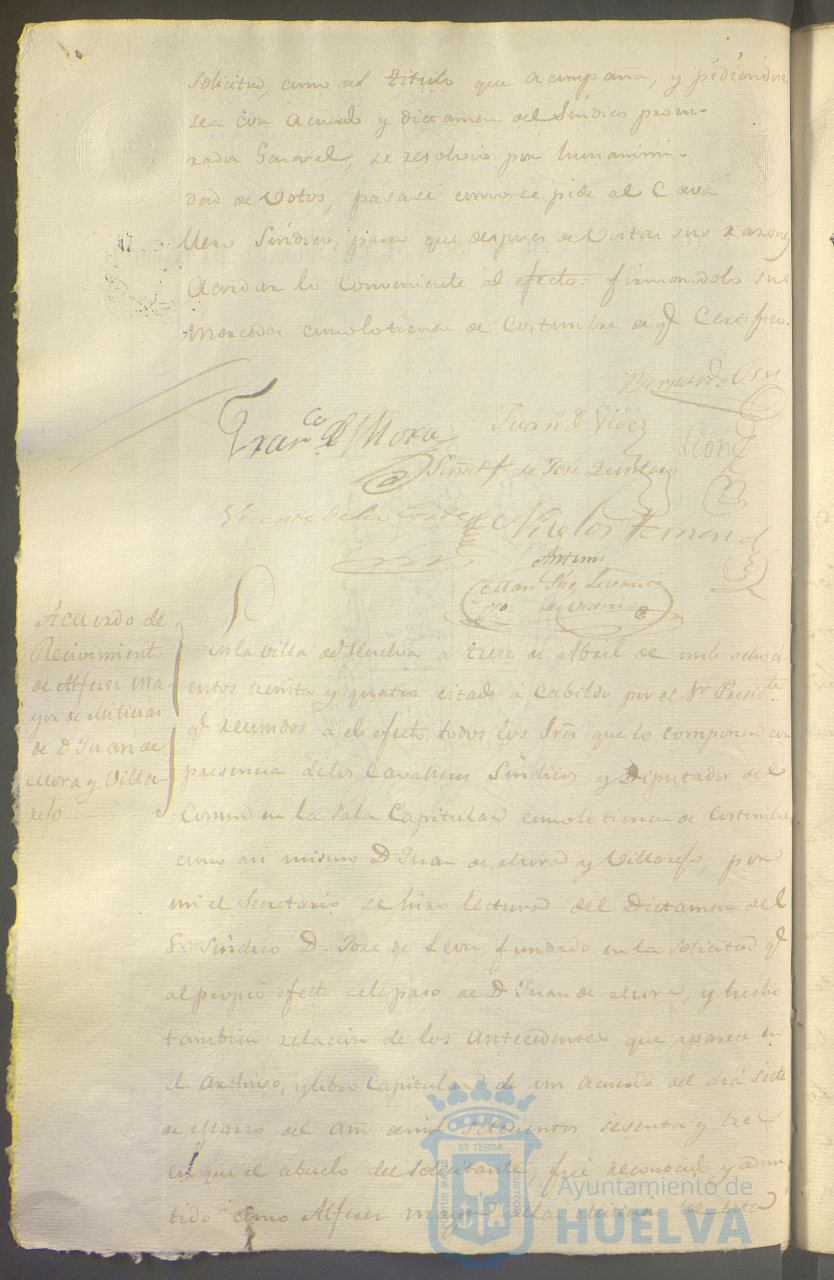 solicitud, como del titulo que acompaña, y pidiendose
sea con acuerdo y dictamen del Sindico procu-
rador General, se resolvio por hunanimi-
dad de Votos, pasase como se pide al Cava
llero Sindico, para que despues de
Acordar lo Conveniente al efecto: firmandolo sus
Mercedes comolotienen de Costumbre, de q.e Certifico.
Bernardo
Franco. de Mora
Juan de
Leon
Señal + de Jose Quintero
Vicente de la Corte
Nicolas Hernand
Antemi
Acuerdo de
Recivimiento
de Alferez Ma-
yor de Milicias
de Dn. Juan de
Mora y Villa-
rejo
En la Villa de Huelva a trece de Abril de mil ochoci
entos treinta y quatro citado a Cabildo por el Sr. Preside.te
q.e reunidos a el efecto todos los Srs. que lo componen con
presencia delos Cavalleros Sindicos y Diputados del
Comun en la Sala Capitular comolotienen de Costumbre
como asi mismo Dn. Juan de Mora y Villarejo, por
mi el Secretario se hizo lectura del Dictamen del
Sr. Sindico D. Jose de Leon fundado en la solicitud q.e
al propio efecto sele paso de Dn. Juan de Mora, y hecho
tambien relacion de los Antecedentes que aparece en
el Archivo, y libro Capitular de un Acuerdo del dia siete
de Marzo del año de mil setecientos sesenta y tres
en que el abuelo del Solicitante, fue reconocido y admi
tido como Alferez mayor delas Milicias
ET TERRÆ
PORTUS MARIS
CUSTODIA
Ayuntamiento de
HUELVA